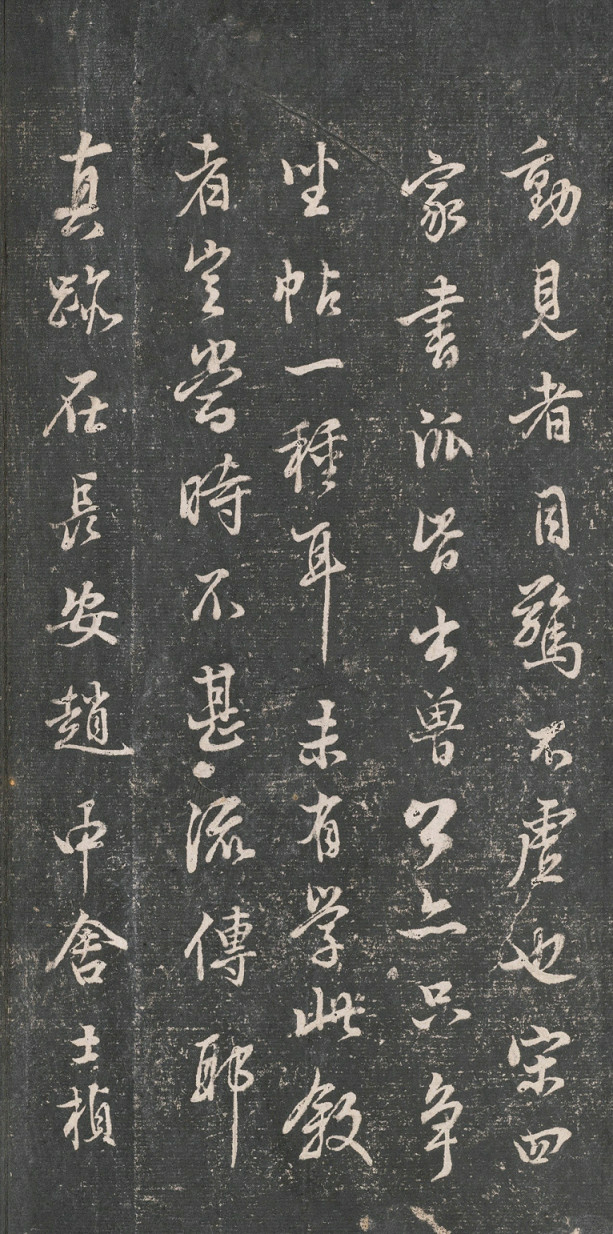 動見者目驚不虛也宋四
家書派皆出魯公亦只争
坐帖一種耳未有學此叙
者豈當時不甚流傳耶
真跡在長安趙中舍士楨